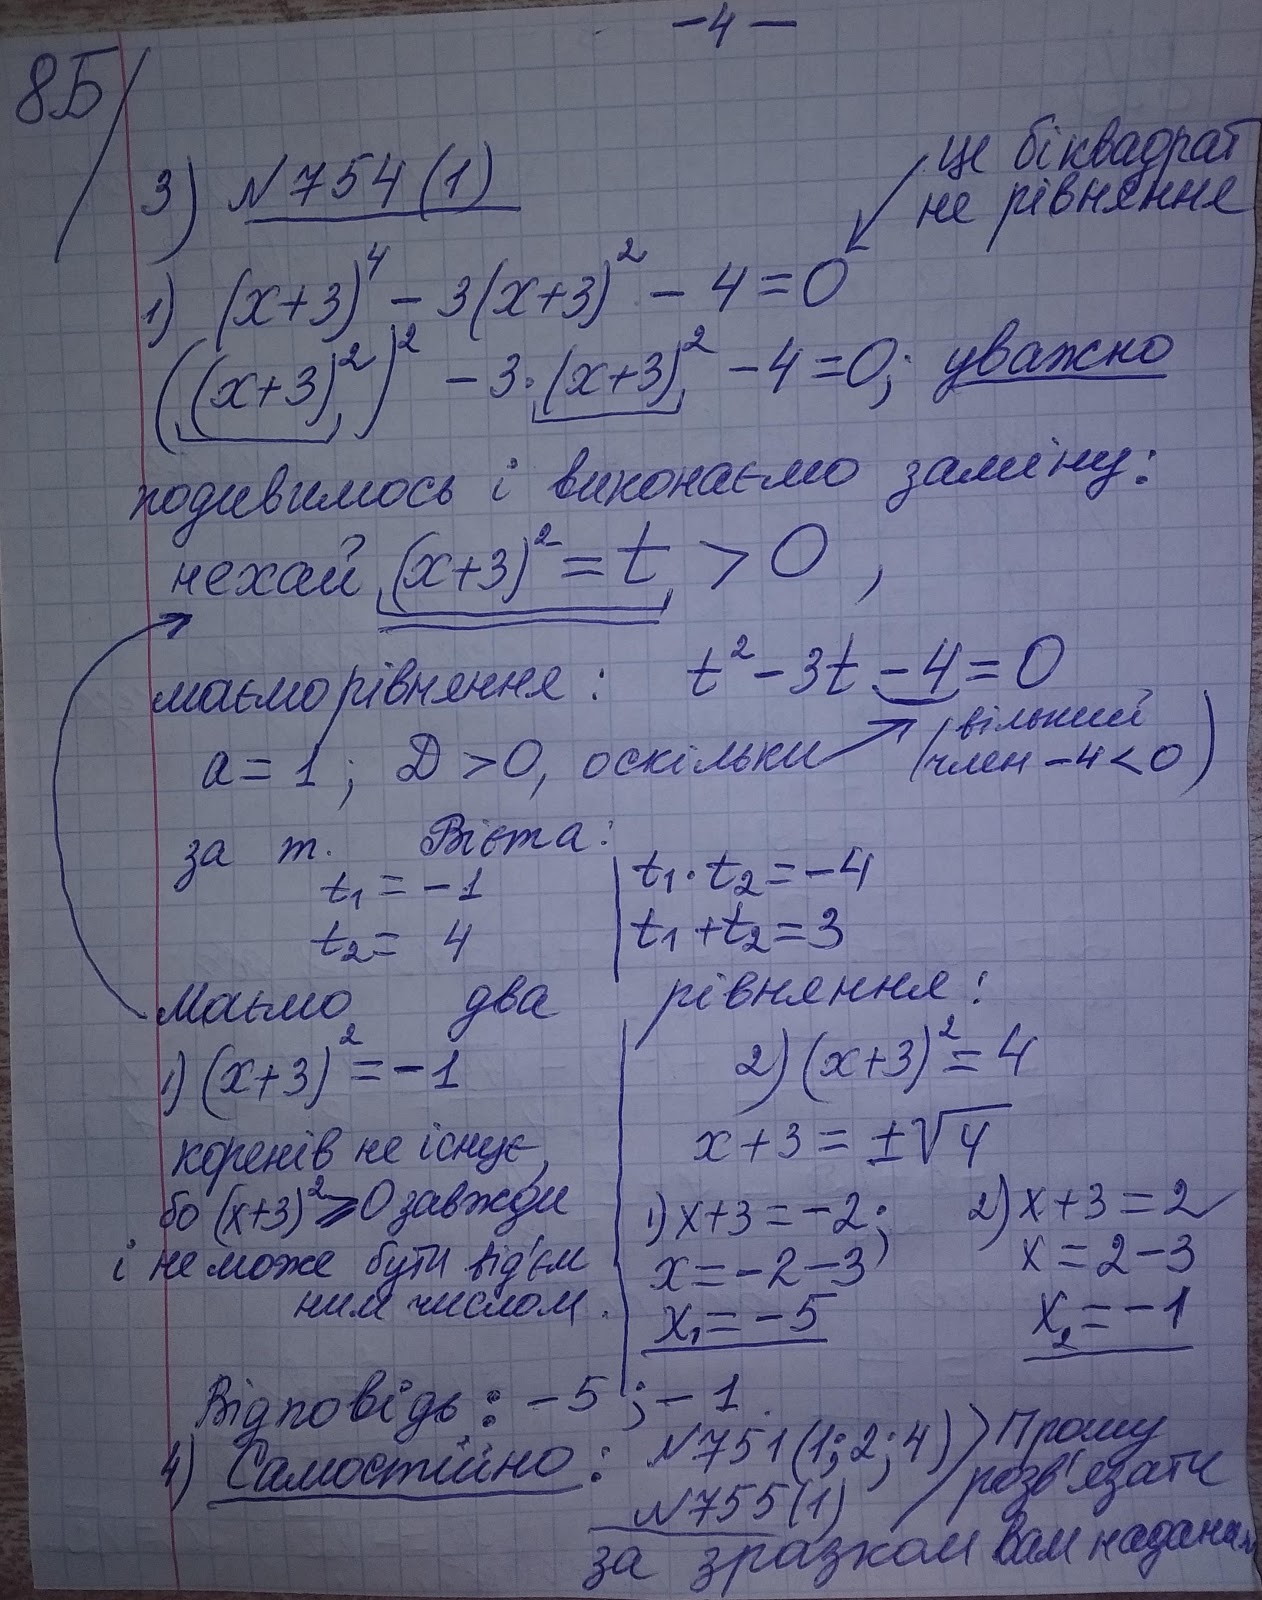 -4-
8Б
3) №754(1)
це біквадрат
не рівняння
1) (x+3)⁴ - 3(x+3)² - 4 = 0
((x+3)²)² - 3·(x+3)² - 4 = 0; уважно
подивимось і виконаємо заміну:
нехай (x+3)² = t > 0,
маємо рівняння: t² - 3t - 4 = 0
a = 1; D > 0, оскільки (вільний
член -4 < 0)
за т. Вієта:
t₁ = -1
t₂ = 4
t₁·t₂ = -4
t₁+t₂ = 3
Маємо два рівняння:
1) (x+3)² = -1
коренів не існує,
бо (x+3)² ⩾ 0 завжди
і не може бути від'єм
ним числом.
2) (x+3)² = 4
x+3 = ±√4
1) x+3 = -2;
x = -2-3
x₁ = -5
2) x+3 = 2
x = 2-3
x₂ = -1
Відповідь: -5; -1.
4) Самостійно: №751(1;2;4)
№755(1)
Прошу
розв'язати
за зразком вам наданим